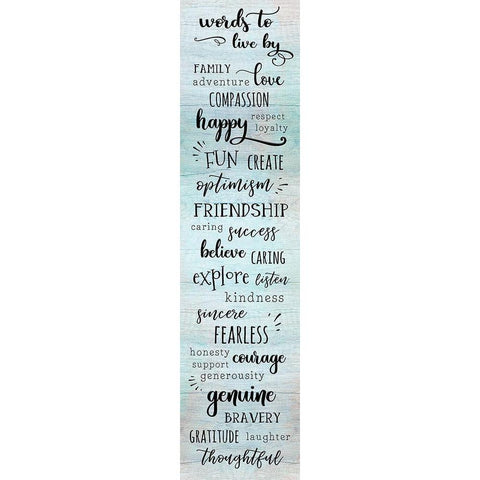 words to
live by
FAMILY
adventure love
COMPASSION
happy respect
loyalty
FUN CREATE
optimism
FRIENDSHIP
caring success
believe CARING
explore listen
kindness
sincere
FEARLESS
honesty
support courage
generousity
genuine
BRAVERY
GRATITUDE laughter
thoughtful